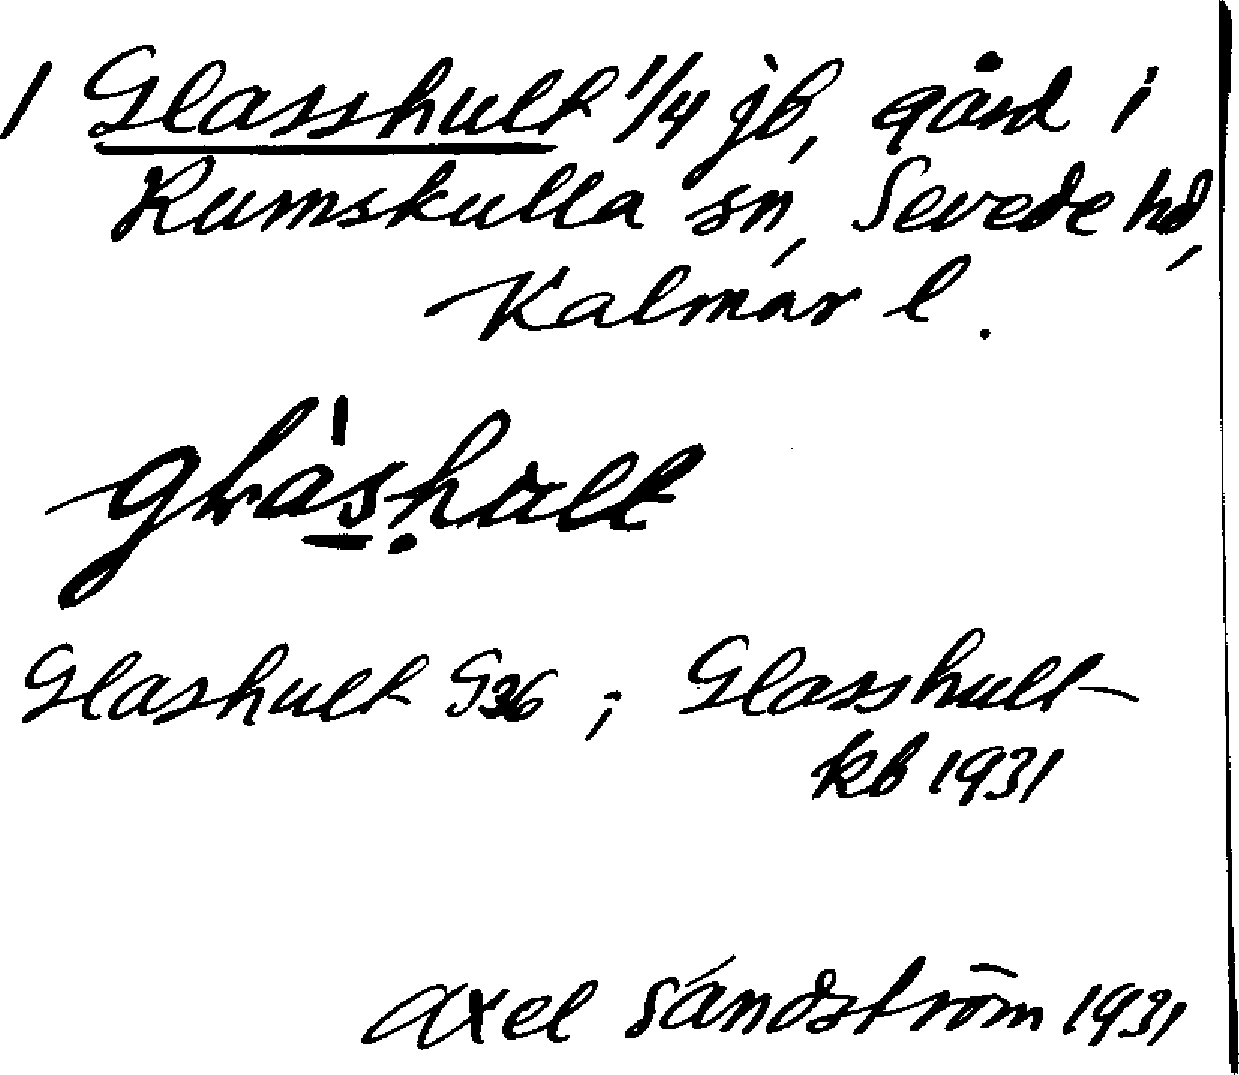 1 Glasshult 1/4 jb, gård i
Rumskulla sn, Sevede hd,
Kalmar l.
glàs̱.hult
Glashult G36 ; Glasshult
kb 1931
Axel Sandström 1931